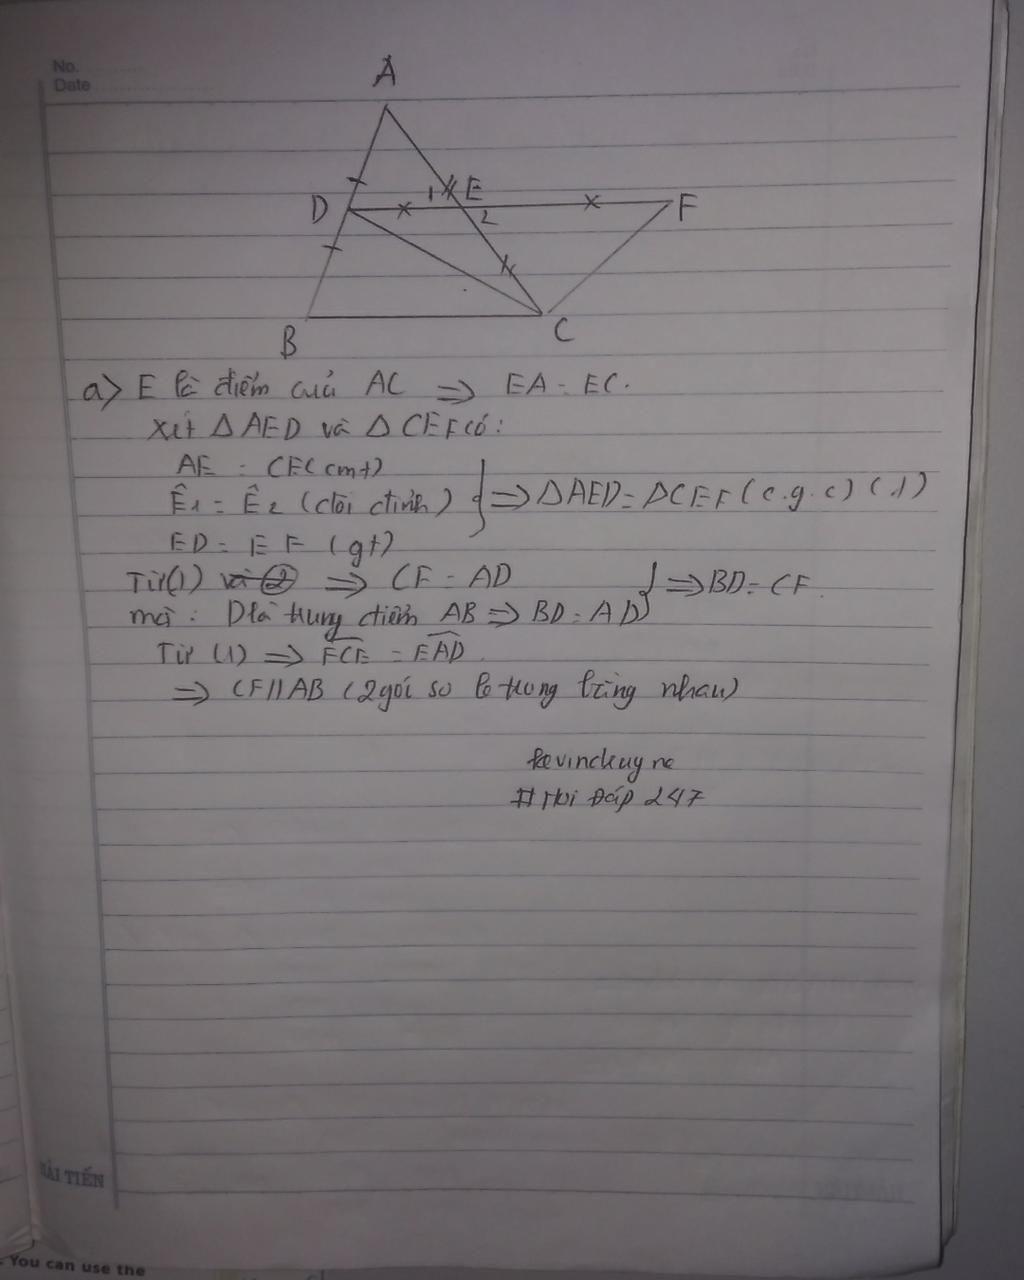 No.
Date
A
D
1
E
2
F
B
C
a) E là điểm của AC => EA = EC.
Xét Δ AED và Δ CEF có:
AE = CE (cmt)
Ê1 = Ê2 (đối đỉnh) } => ΔAED = ΔCEF (c.g.c) (1)
ED = EF (gt)
Từ (1) và (2) => CF = AD
mà: D là trung điểm AB => BD = AD } => BD = CF.
Từ (1) => FCE = EAD.
=> CF // AB (2 gói so le trung bằng nhau)
kevinckuyne
# Hoi Đáp 247
HẢI TIẾN
. You can use the